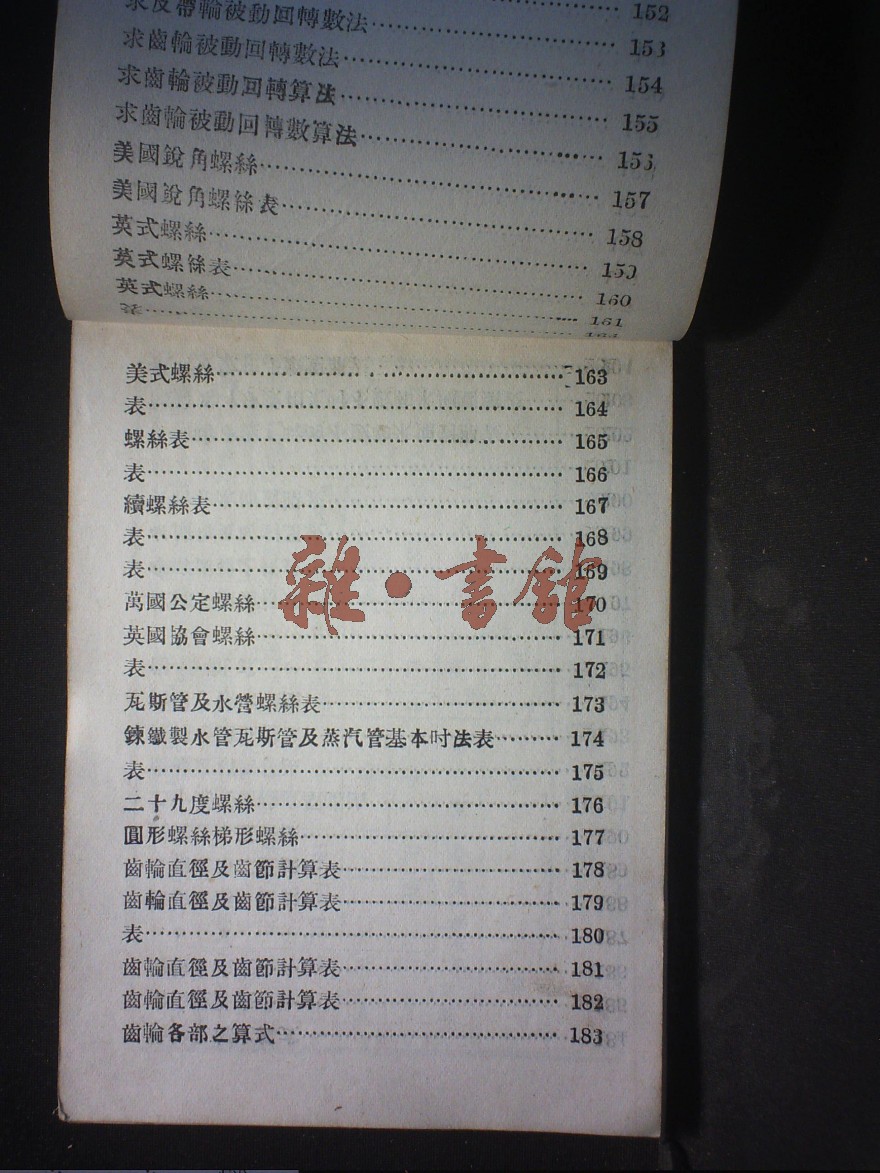 求皮帶輪被動回轉數法……152
求齒輪被動回轉數法……153
求齒輪被動回轉算法……154
求齒輪被動回轉數算法……155
美國銳角螺絲……156
美國銳角螺絲表……157
英式螺絲……158
英式螺絲表……159
英式螺絲……160
表……161
美式螺絲……163
表……164
螺絲表……165
表……166
續螺絲表……167
表……168
表……169
雜·書館
萬國公定螺絲……170
英國協會螺絲……171
表……172
瓦斯管及水營螺絲表……173
鍊鐵製水管瓦斯管及蒸汽管基本吋法表……174
表……175
二十九度螺絲……176
圓形螺絲梯形螺絲……177
齒輪直徑及齒節計算表……178
齒輪直徑及齒節計算表……179
表……180
齒輪直徑及齒節計算表……181
齒輪直徑及齒節計算表……182
齒輪各部之算式……183